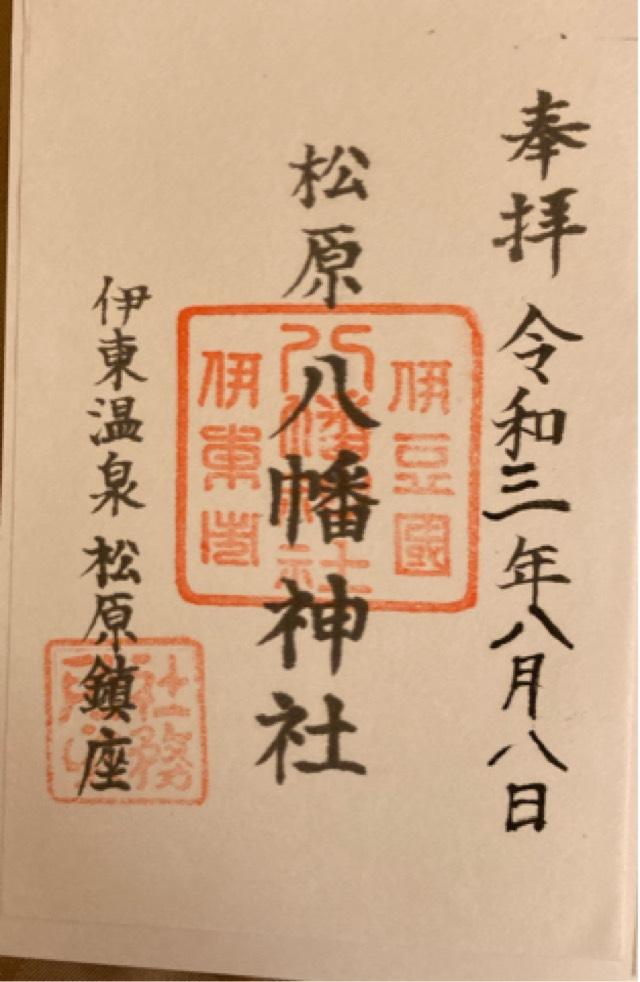 奉拝 令和三年八月八日
松原八幡神社
伊豆國
八幡神社
伊東市
伊東温泉 松原鎮座
社務